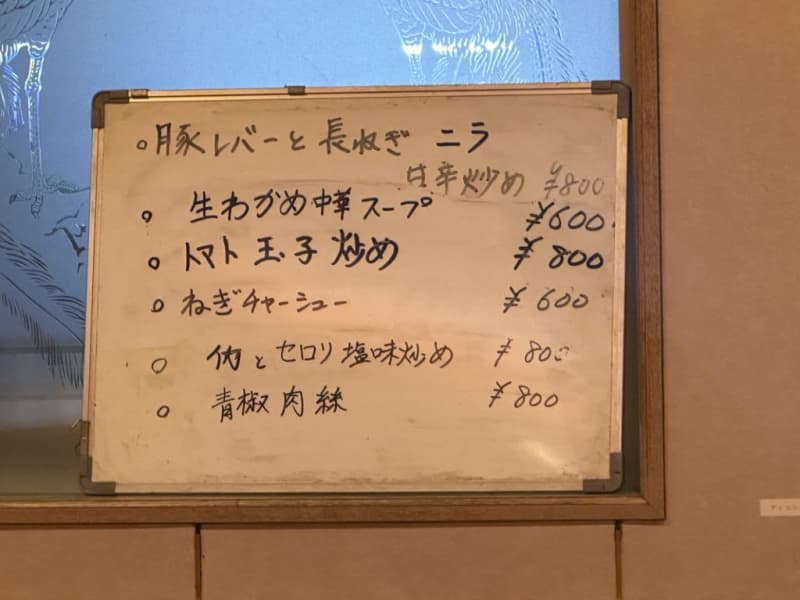 ○豚レバーと長ねぎ ニラ
甘辛炒め ¥800
○ 生わかめ中華スープ ¥600
○ トマト玉子炒め ¥800
○ ねぎチャーシュー ¥600
○ 肉とセロリ塩味炒め ¥800
○ 青椒肉絲 ¥800